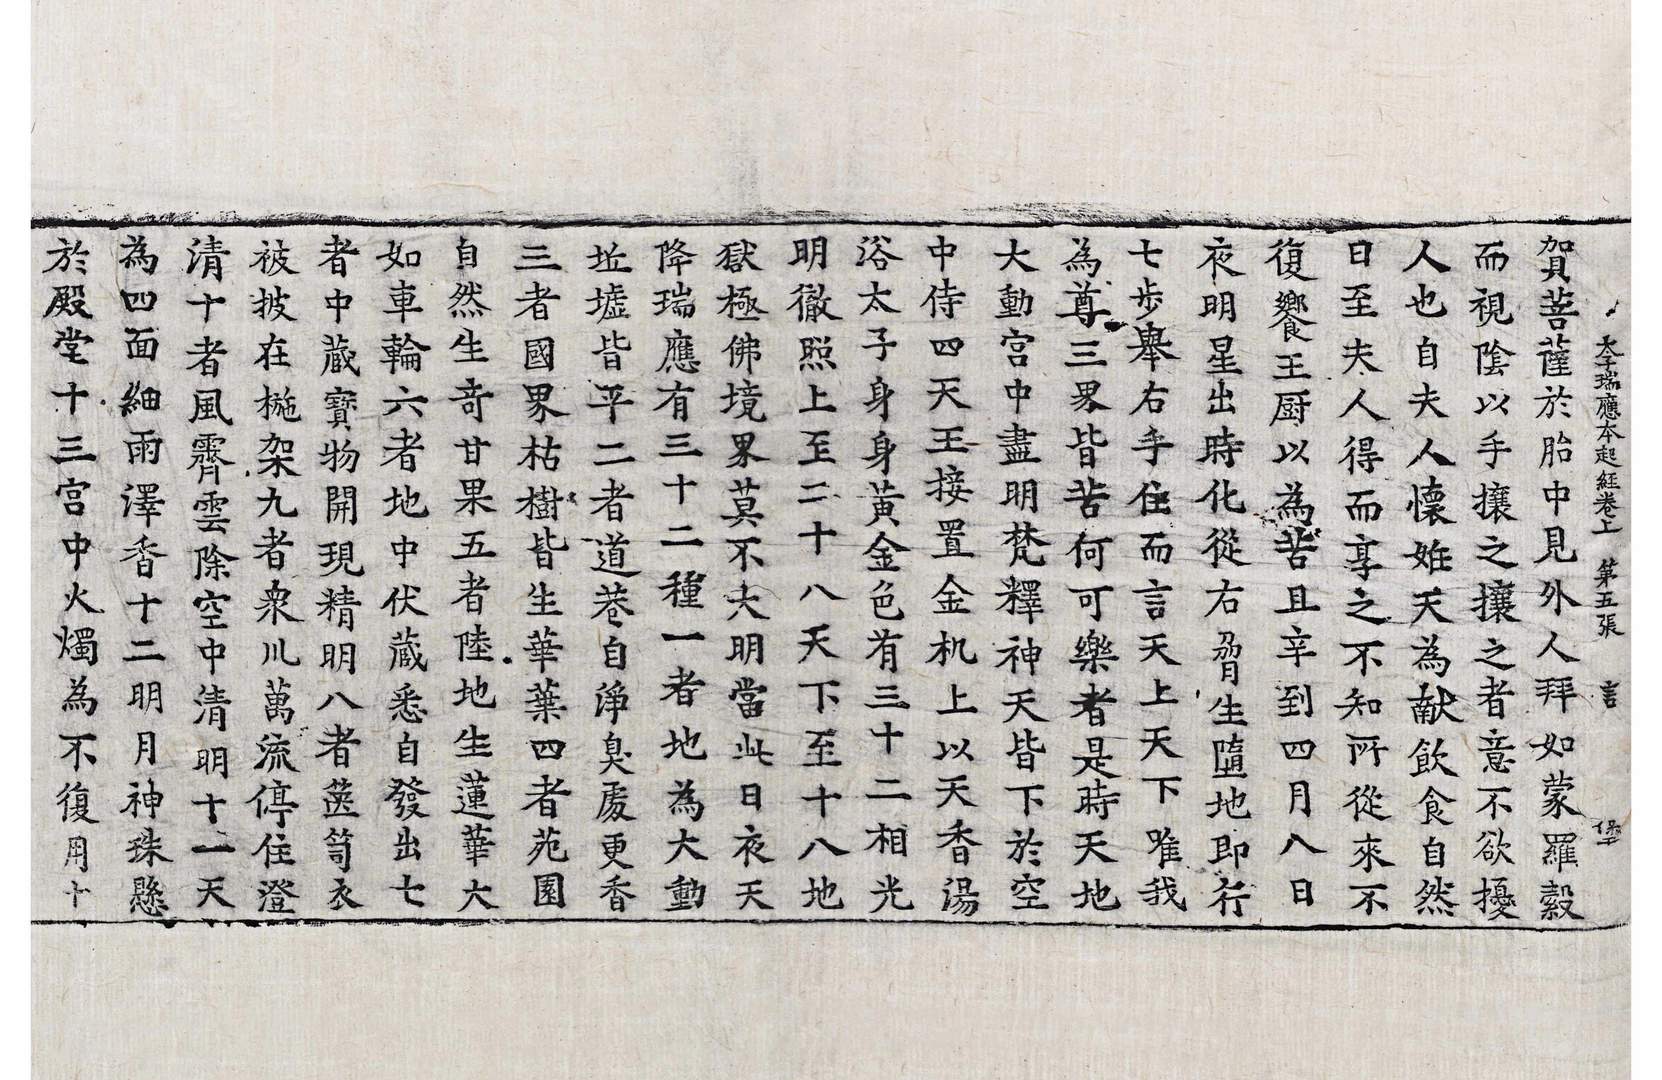 太子瑞應本起經卷上 第五張 言 堡
賀菩薩於胎中見外人拜如蒙羅縠
而視陰以手攘之攘之者意不欲擾
人也自夫人懷姙天為献飲食自然
日至夫人得而享之不知所從來不
復饗王厨以為苦且辛到四月八日
夜明星出時化從右脅生墮地即行
七步舉右手住而言天上天下唯我
為尊三界皆苦何可樂者是時天地
大動宮中盡明梵釋神天皆下於空
中侍四天王接置金机上以天香湯
浴太子身身黃金色有三十二相光
明徹照上至二十八天下至十八地
獄極佛境界莫不大明當此日夜天
降瑞應有三十二種一者地為大動
坵墟皆平二者道巷自淨臭處更香
三者國界枯樹皆生華葉四者苑園
自然生奇甘果五者陸地生蓮華大
如車輪六者地中伏藏悉自發出七
者中藏寶物開現精明八者篋笥衣
被披在椸架九者衆川萬流停住澄
清十者風霽雲除空中清明十一天
為四面細雨澤香十二明月神珠懸
於殿堂十三宮中火燭為不復用十